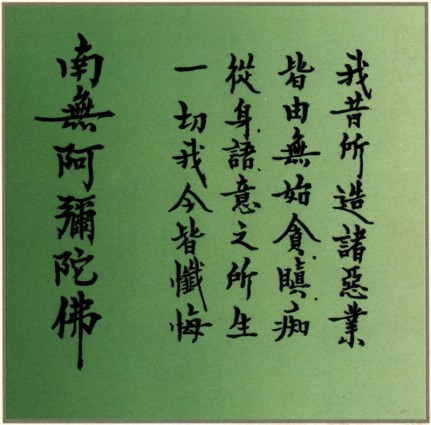 我昔所造諸惡業
皆由無始貪瞋痴
從身語意之所生
一切我今皆懺悔
南無阿彌陀佛